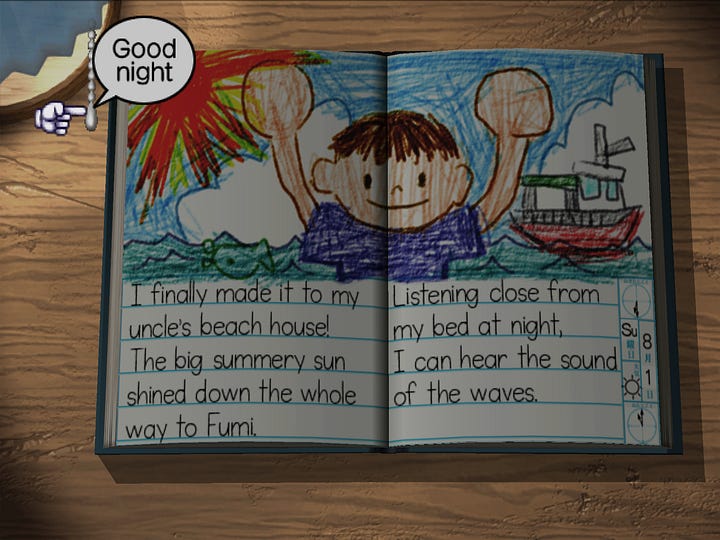 Good
night
I finally made it to my
uncle's beach house!
The big summery sun
shined down the whole
way to Fumi.
Listening close from
my bed at night,
I can hear the sound
of the waves.
Su
曜
日
8
月
1
日